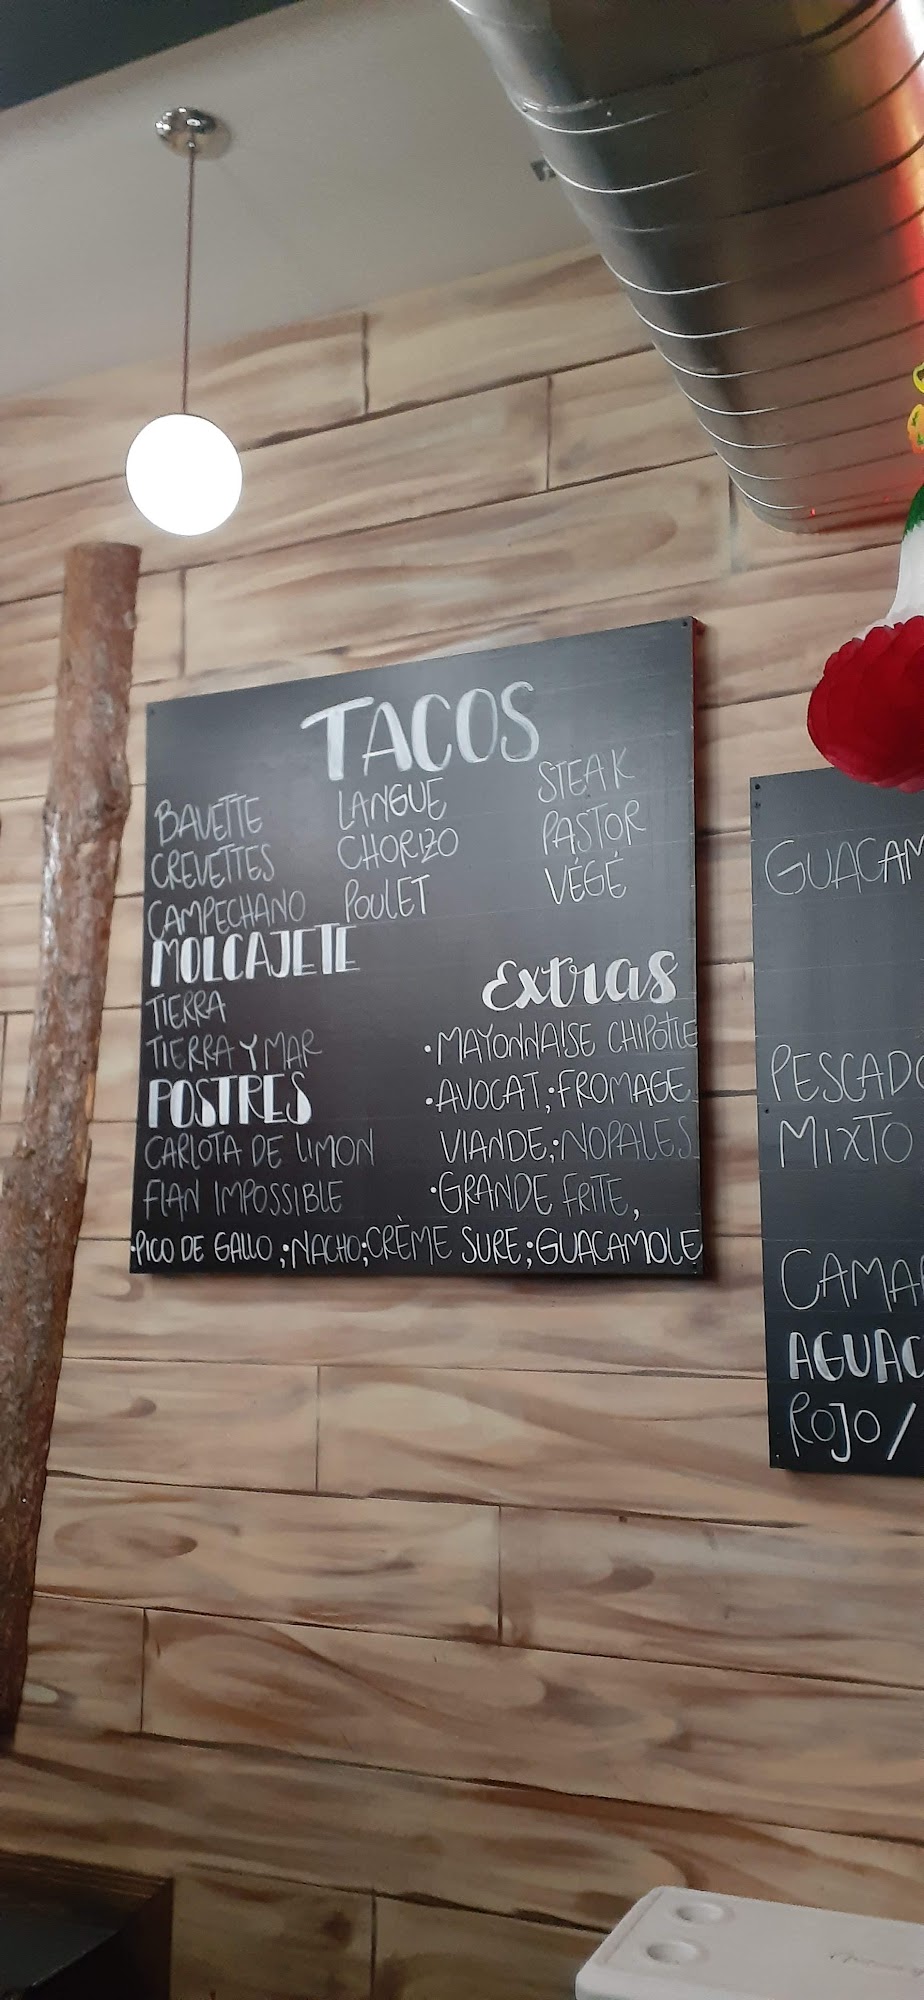 TACOS
BAVETTE LANGUE STEAK
CREVETTES CHORIZO PASTOR
CAMPECHANO POULET VÉGÉ
MOLCAJETE
TIERRA
TIERRA Y MAR
POSTRES
CARLOTA DE LIMON
FLAN IMPOSSIBLE
Extras
•MAYONNAISE CHIPOTLE
•AVOCAT;FROMAGE
VIANDE;NOPALES
•GRANDE FRITE,
•PICO DE GALLO ;NACHO;CRÈME SURE;GUACAMOLE
GUACAM
PESCADO
MIXTO
CAMA
AGUAC
ROJO /